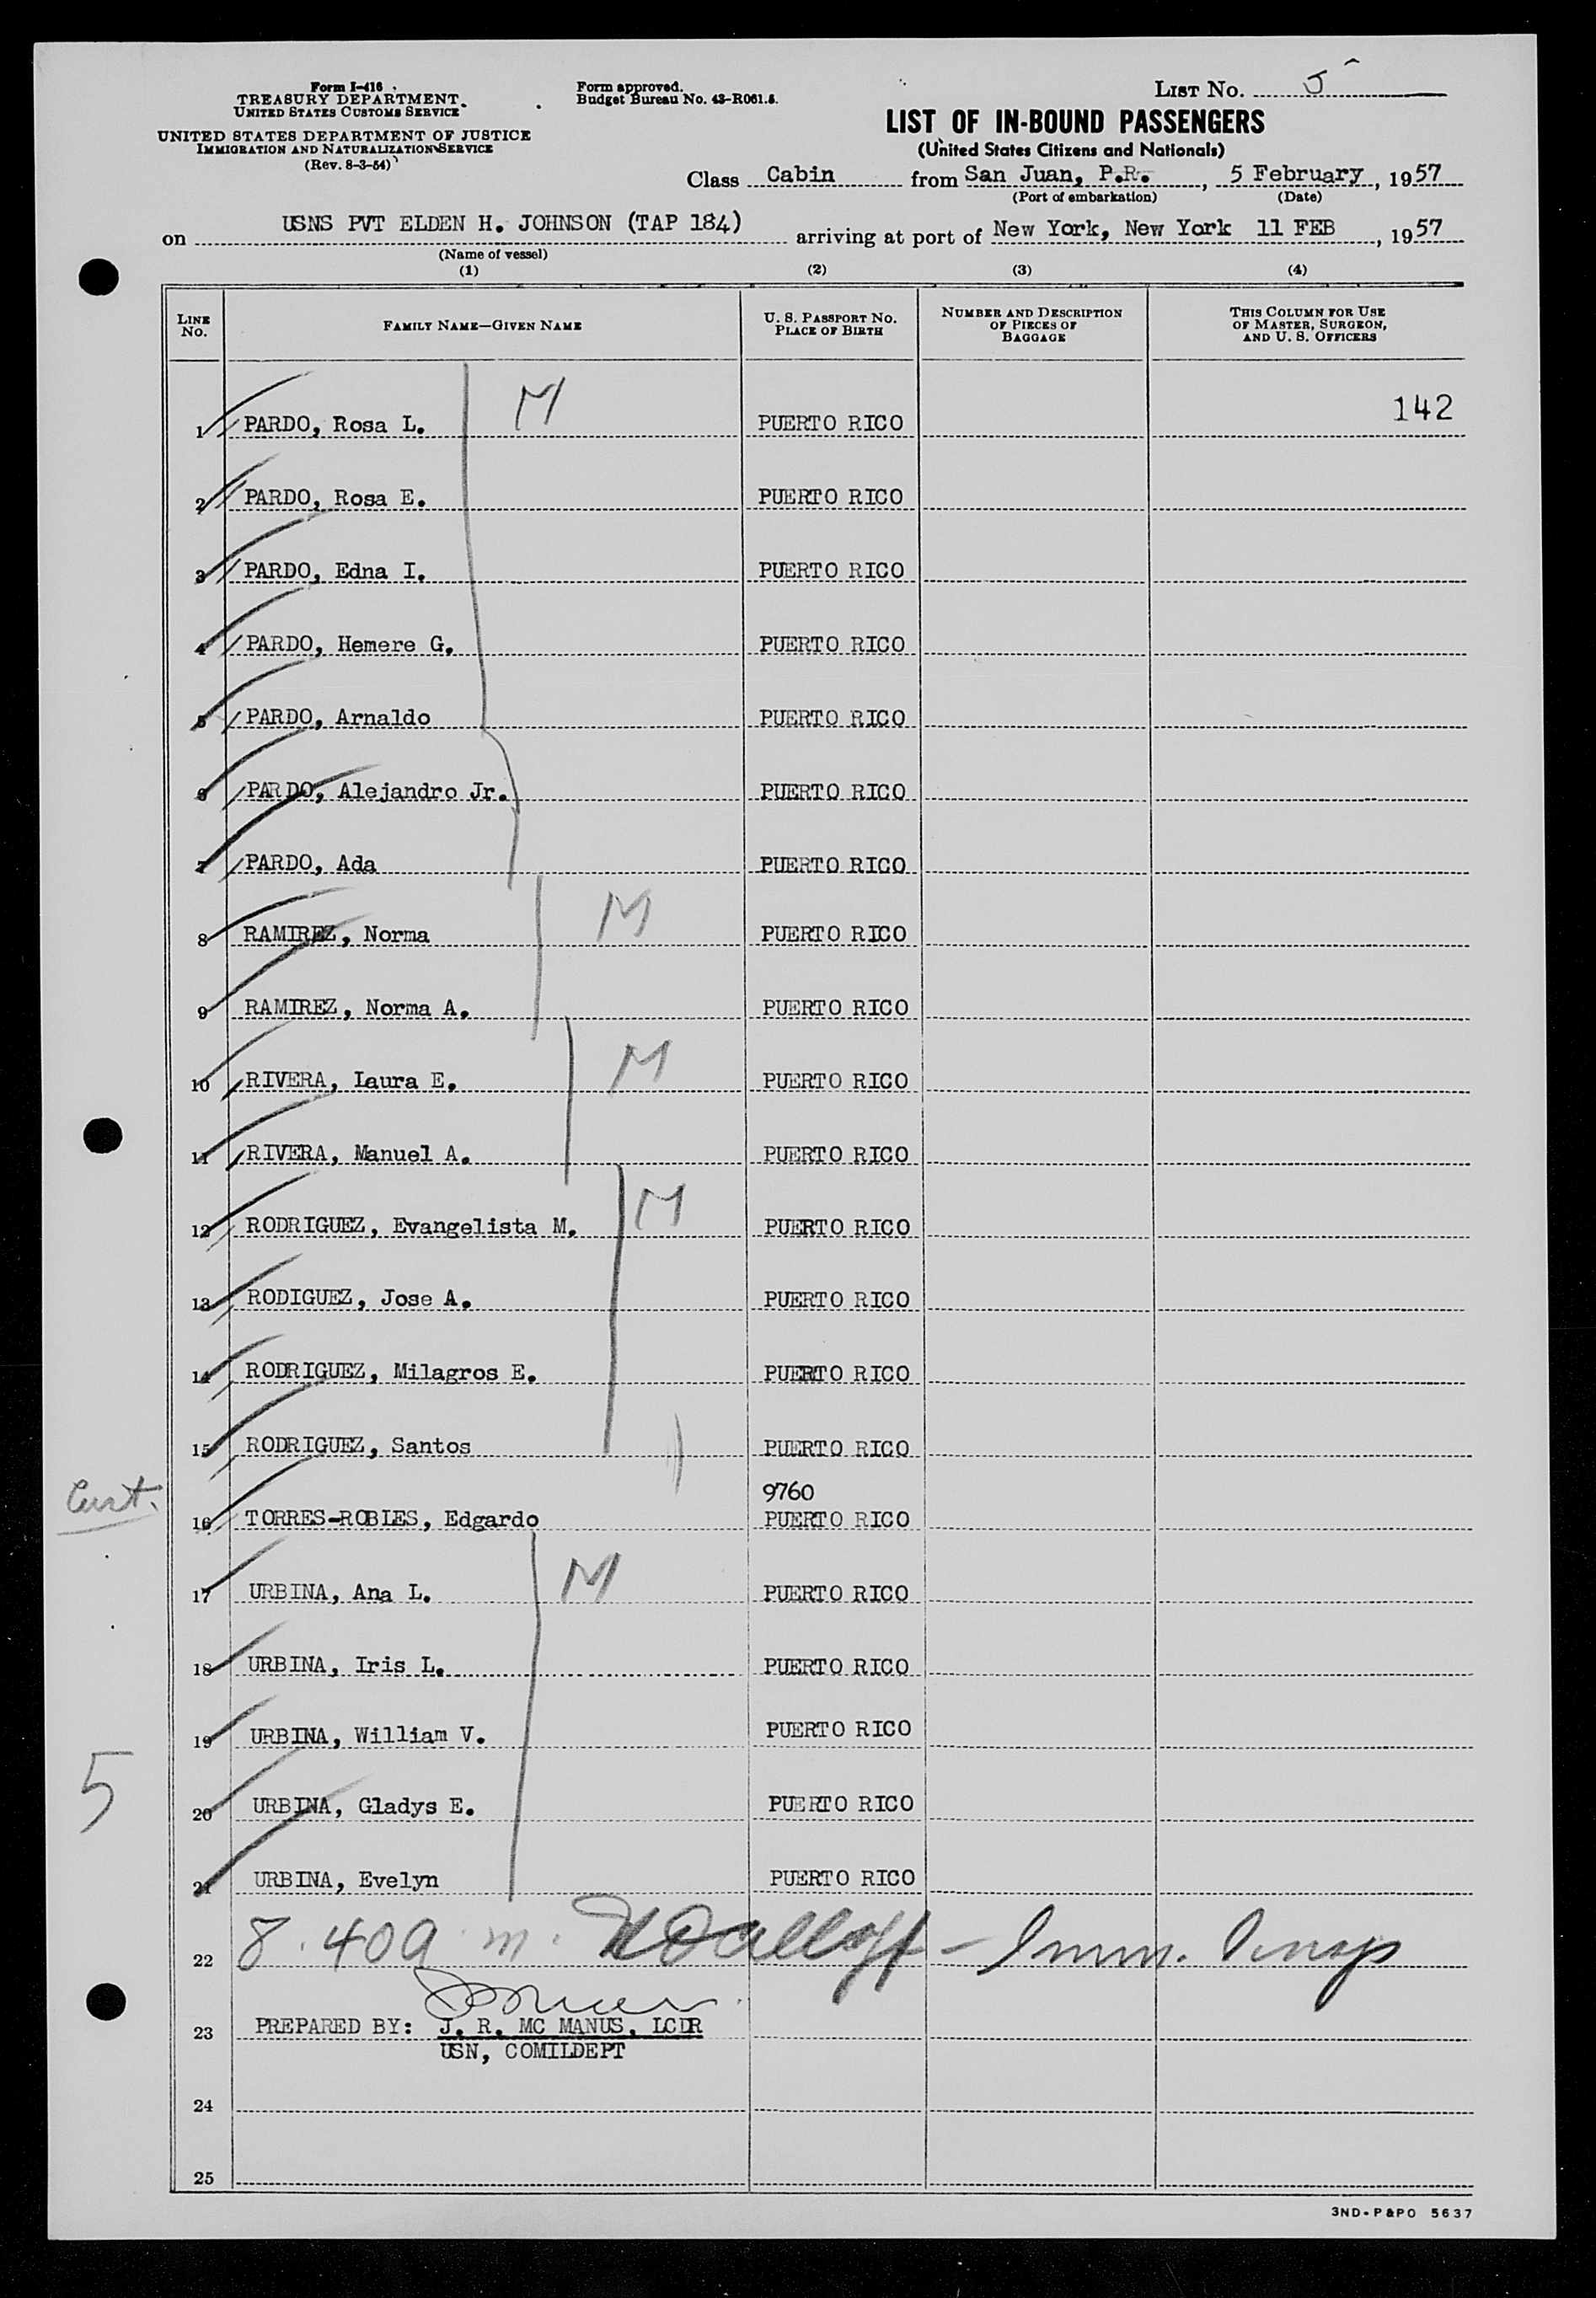 Form I-416
TREASURY DEPARTMENT
UNITED STATES CUSTOMS SERVICE
UNITED STATES DEPARTMENT OF JUSTICE
IMMIGRATION AND NATURALIZATION SERVICE
(Rev. 8-3-54)
Form approved.
Budget Bureau No. 43-R061.5.
LIST No. J
LIST OF IN-BOUND PASSENGERS
(United States Citizens and Nationals)
Class Cabin from San Juan, P.R., 5 February, 1957
(Port of embarkation) (Date)
on USNS PVT ELDEN H. JOHNSON (TAP 184) arriving at port of New York, New York 11 FEB, 1957
(Name of vessel)
(1) (2) (3) (4)
LINE NO. FAMILY NAME—GIVEN NAME U. S. PASSPORT NO. PLACE OF BIRTH NUMBER AND DESCRIPTION OF PIECES OF BAGGAGE THIS COLUMN FOR USE OF MASTER, SURGEON, AND U. S. OFFICERS
1 PARDO, Rosa L. M PUERTO RICO 142
2 PARDO, Rosa E. PUERTO RICO
3 PARDO, Edna I. PUERTO RICO
4 PARDO, Hemere G. PUERTO RICO
5 PARDO, Arnaldo PUERTO RICO
6 PARDO, Alejandro Jr. PUERTO RICO
7 PARDO, Ada PUERTO RICO
8 RAMIREZ, Norma M PUERTO RICO
9 RAMIREZ, Norma A. PUERTO RICO
10 RIVERA, Laura E. M PUERTO RICO
11 RIVERA, Manuel A. PUERTO RICO
12 RODRIGUEZ, Evangelista M. M PUERTO RICO
13 RODIGUEZ, Jose A. PUERTO RICO
14 RODRIGUEZ, Milagros E. PUERTO RICO
15 RODRIGUEZ, Santos PUERTO RICO
9760
16 TORRES-ROBLES, Edgardo PUERTO RICO
17 URBINA, Ana L. M PUERTO RICO
18 URBINA, Iris L. PUERTO RICO
19 URBINA, William V. PUERTO RICO
5
20 URBINA, Gladys E. PUERTO RICO
21 URBINA, Evelyn PUERTO RICO
22 8.40 a.m. - Imm. Insp
23 PREPARED BY: J. R. MC MANUS, LCDR
USN, COMILDEPT
24
25
3ND-P&PO 5637